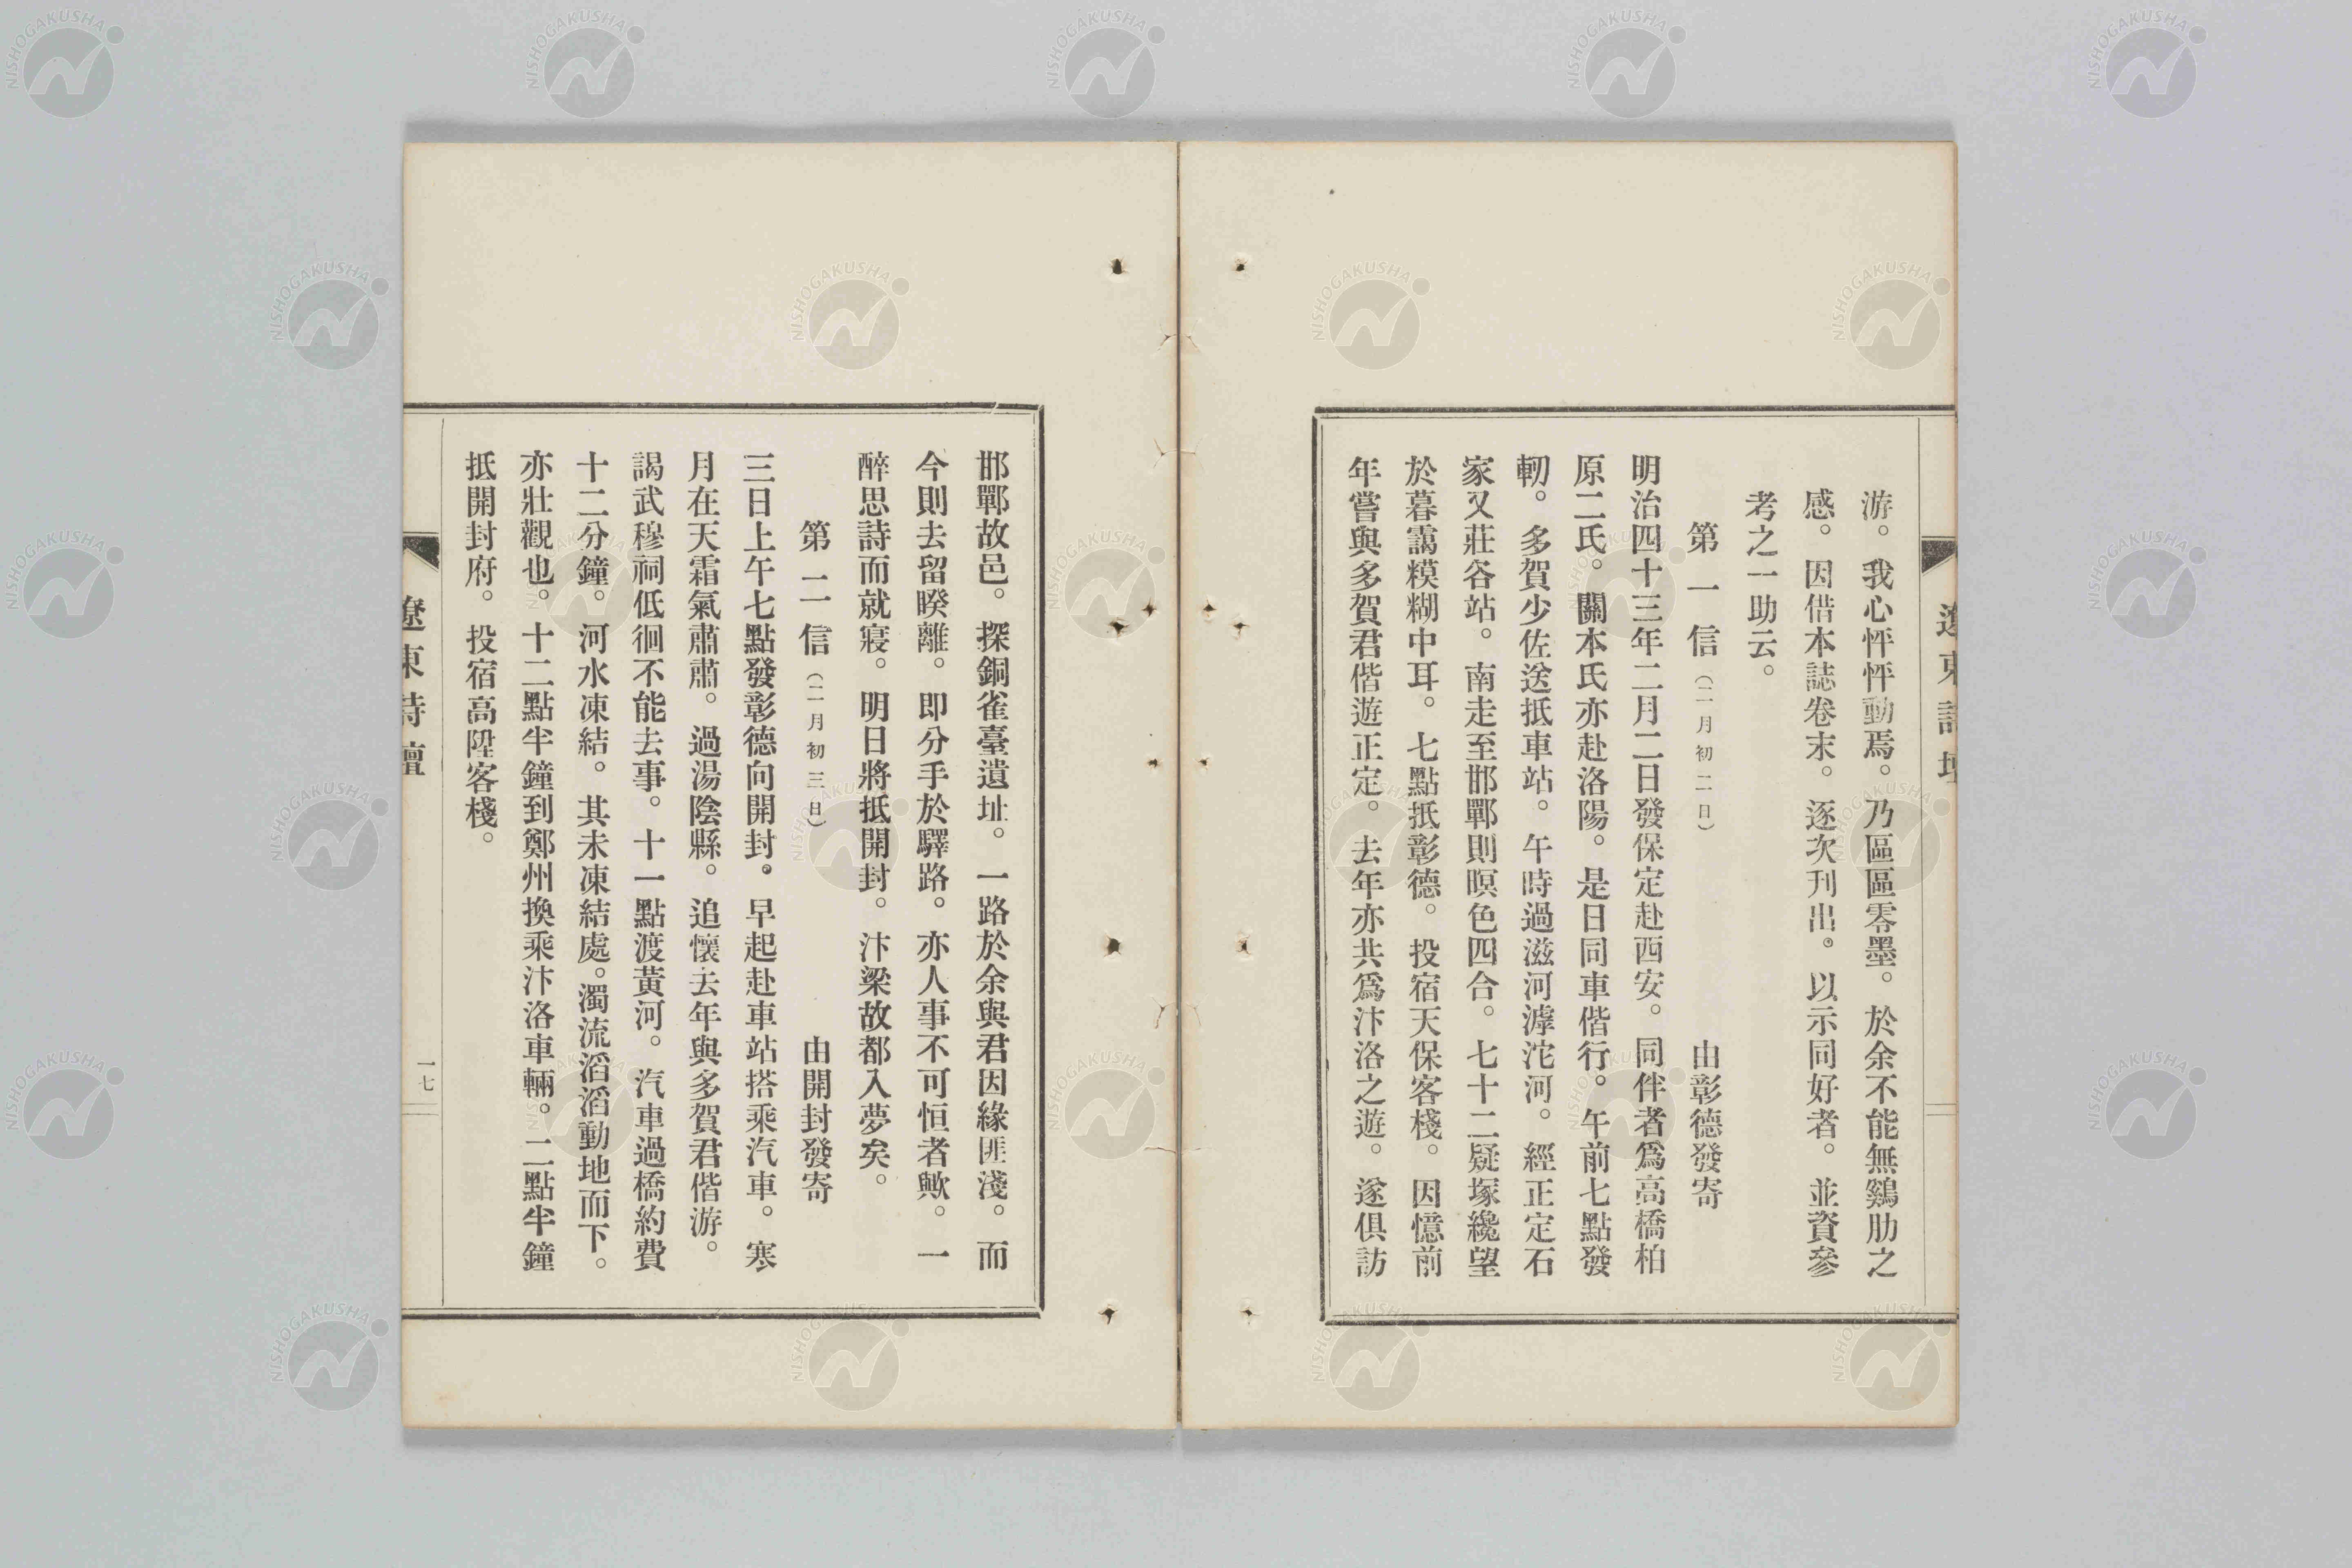 游。我心怦怦動焉。乃區區零墨。於余不能無鷄肋之
感。因借本誌卷末。逐次刊出。以示同好者。並資參
考之一助云。
第一信（二月初二日）　由彰德發寄
明治四十三年二月二日發保定赴西安。同伴者爲高橋柏
原二氏。關本氏亦赴洛陽。是日同車偕行。午前七點發
軔。多賀少佐送抵車站。午時過滋河滹沱河。經正定石
家又莊各站。南走至邯鄲則暝色四合。七十二疑塚纔望
於暮靄糢糊中耳。七點抵彰德。投宿天保客棧。因憶前
年嘗與多賀君偕遊正定。去年亦共爲汴洛之遊。遂俱訪
邯鄲故邑。探銅雀臺遺址。一路於余與君因緣匪淺。而
今則去留暌離。即分手於驛路。亦人事不可恒者歟。一
醉思詩而就寢。明日將抵開封。汴梁故都入夢矣。
第二信（二月初三日）　由開封發寄
三日上午七點發彰德向開封。早起赴車站搭乘汽車。寒
月在天霜氣肅肅。過湯陰縣。追懷去年與多賀君偕游。
謁武穆祠低徊不能去事。十一點渡黃河。汽車過橋約費
十二分鐘。河水凍結。其未凍結處。濁流滔滔動地而下。
亦壯觀也。十二點半鐘到鄭州換乘汴洛車輛。二點半鐘
抵開封府。投宿高陞客棧。
遼東詩壇
一七
NISHOGAKUSHA